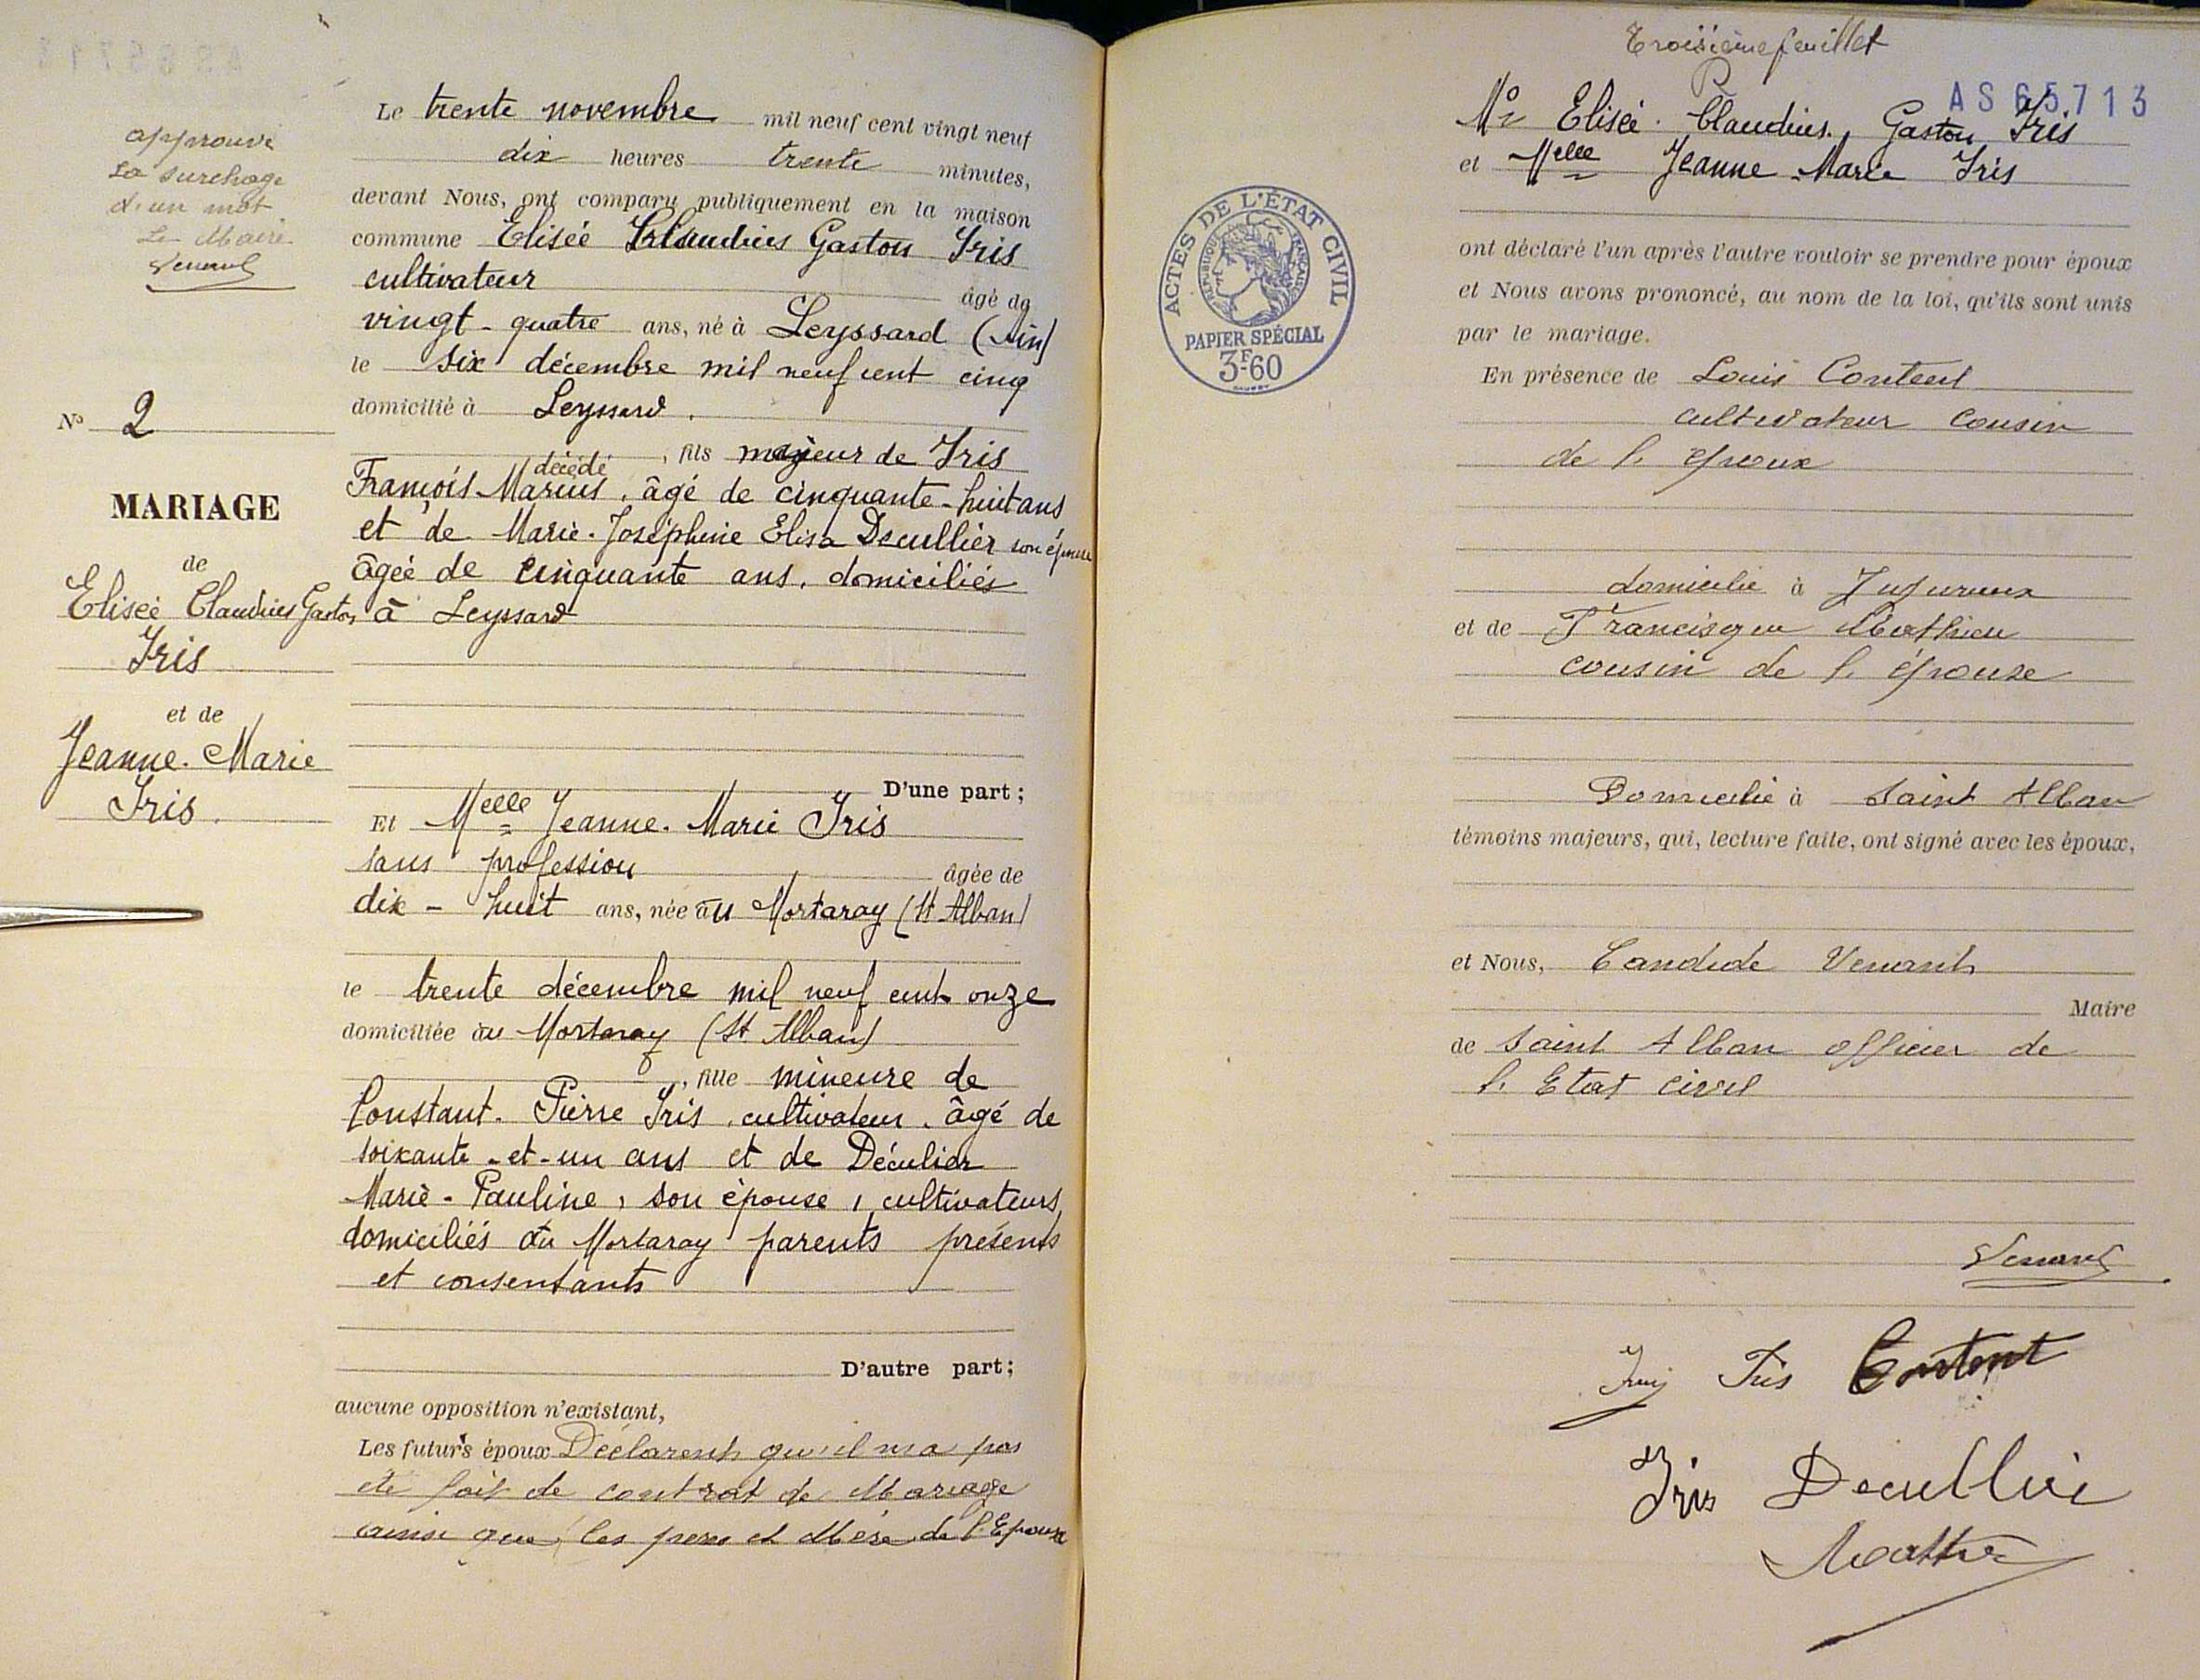 approuvé
la surchage
d'un mot
Le Maire
Venard
N° 2
MARIAGE
de
Elisée Claudius Gaston
Iris
et de
Jeanne-Marie
Iris.
Le trente novembre mil neuf cent vingt neuf
dix heures trente minutes,
devant Nous, ont comparu publiquement en la maison
commune Elisée Claudius Gaston Iris
cultivateur âgé de
vingt-quatre ans, né à Leyssard (Ain)
le six décembre mil neuf cent cinq
domicilié à Leyssard.
, fils majeur de Iris
décédé
François-Marius, âgé de cinquante-huit ans
et de Marie-Joséphine Elisa Decullier son épouse
âgée de cinquante ans, domiciliés
à Leyssard
D'une part;
Et Melle Jeanne-Marie Iris
sans profession âgée de
dix-huit ans, née au Mortaray (St Alban)
le trente décembre mil neuf cent onze
domiciliée au Mortaray (St Alban)
, fille mineure de
Constant-Pierre Iris, cultivateur, âgé de
soixante-et-un ans et de Déculier
Marie-Pauline, son épouse, cultivateurs,
domiciliés au Mortaray parents présents
et consentants
D'autre part;
aucune opposition n'existant,
Les futurs époux Déclarent qu'il n'a pas
été fait de contrat de Mariage
ainsi que les peres et Mère de l'Epouse
Troisième feuillet
R
AS65713
Mr Elisée Claudius, Gaston Iris
et Melle Jeanne Marie Iris
ACTES DE L'ÉTAT CIVIL
RÉPUBLIQUE FRANÇAISE
PAPIER SPÉCIAL
3F60
ont déclaré l'un après l'autre vouloir se prendre pour époux
et Nous avons prononcé, au nom de la loi, qu'ils sont unis
par le mariage.
En présence de Louis
cultivateur Cousin
de l'époux
domicilié à Jujurieux
et de Francisque Mathieu
cousin de l'épouse
Domicilié à Saint Alban
témoins majeurs, qui, lecture faite, ont signé avec les époux,
et Nous, Candide Venard
Maire
de Saint Alban officier de
l'Etat civil
Venard
Iris Iris
Iris Decullier
Mathieu